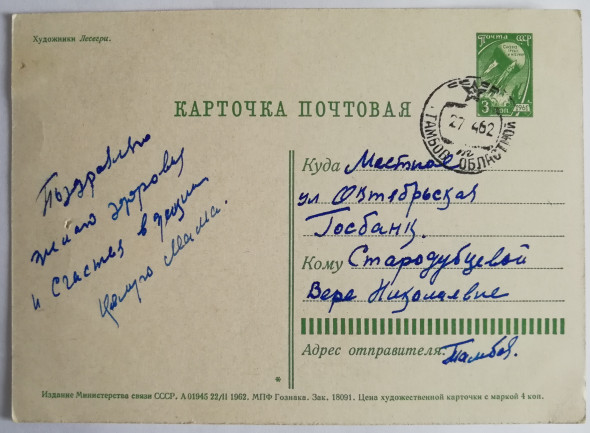 Художники Лесегри.
Почта СССР
3 коп.
ТАМБОВ ОБЛАСТНОЙ
27 4 62
КАРТОЧКА ПОЧТОВАЯ
Поздравляю
желаю здоровья
и счастья в жизни
целую мама.
Куда Местное
ул Октябрьская
Госбанк.
Кому Стародубцевой
Вере Николаевне
Адрес отправителя: Тамбов.
Издание Министерства связи СССР. А 01945 22/II 1962. МПФ Гознака. Зак. 18091. Цена художественной карточки с маркой 4 коп.